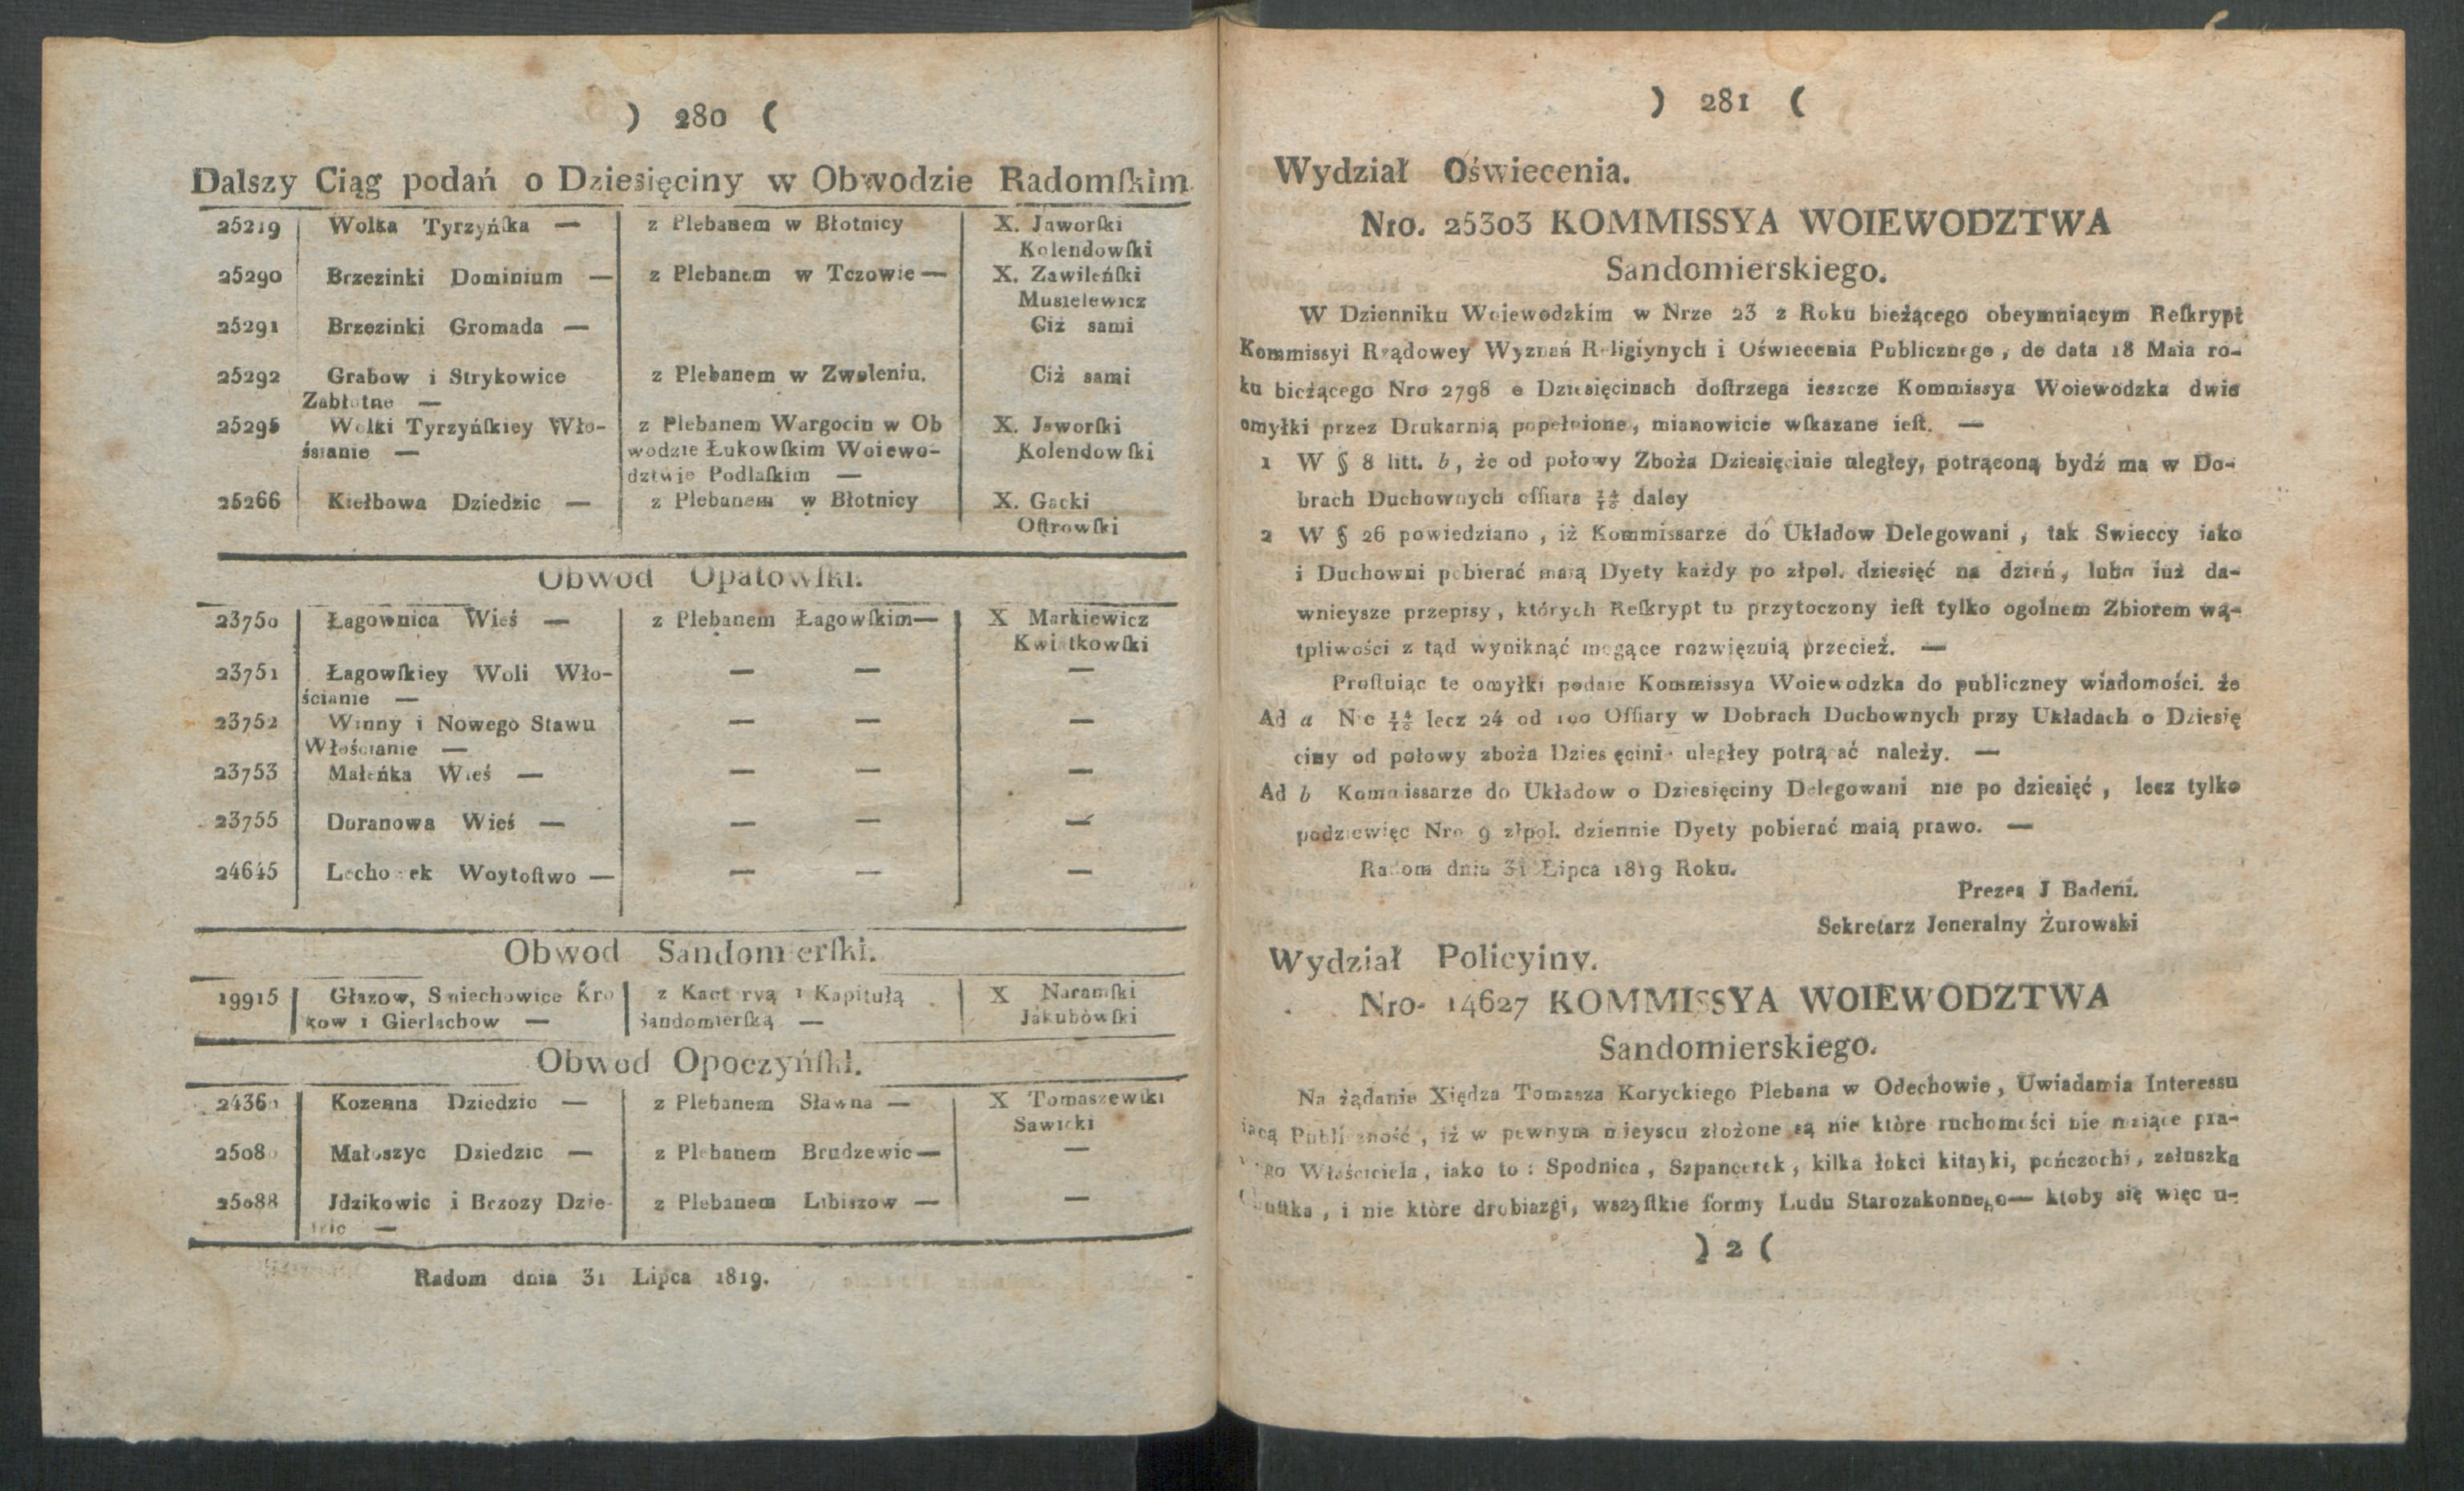 ) 280 (
Dalszy Ciąg podań o Dziesięciny w Obwodzie Radomſkim
25219 Wolka Tyrzyńſka — z Plebanem w Błotnicy X. Jaworſki
Kolendowſki
25290 Brzezinki Dominium — z Plebanem w Tczowie — X. Zawileńſki
Musielewicz
25291 Brzezinki Gromada — Ciż sami
25292 Grabow i Strykowice z Plebanem w Zwoleniu. Ciż sami
Zabłotne —
25295 Wolki Tyrzyńſkiey Wło- z Plebanem Wargocin w Ob X. Jaworſki
śsianie — wodzie Łukowſkim Woiewo- Kolendowſki
dztwie Podlaſkim —
25266 Kiełbowa Dziedzic — z Plebanem w Błotnicy X. Gacki
Oſtrowſki
Obwod Opatowſki.
23750 Łagownica Wieś — z Plebanem Łagowſkim — X Markiewicz
Kwiatkowſki
23751 Łagowſkiey Woli Wło- — — —
ścianie —
23752 Winny i Nowego Stawu — — —
Włościanie —
23753 Maleńka Wieś — — — —
23755 Duranowa Wieś — — — —
24645 Woytoſtwo — — — —
Obwod Sandomierſki.
19915 Głazow, Smiechowice Kro z i Kapitułą X Naramſki
kow i Gierlachow — Sandomierſką — Jakubowſki
Obwod Opoczyńſki.
Kozenna Dziedzic — z Plebanem Sławna — X Tomaszewſki
Sawicki
Małoszyc Dziedzic — z Plebanem Brudzewic — —
25088 Jdzikowic i Brzozy Dzie- z Plebanem Libiszow — —
dzic —
Radom dnia 31 Lipca 1819.
) 281 (
Wydział Oświecenia.
Nro. 25303 KOMMISSYA WOIEWODZTWA
Sandomierskiego.
W Dzienniku Woiewodzkim w Nrze 23 z Roku bieżącego obeymuiącym Reſkrypt
Kommissyi Rządowey Wyznań Religiynych i Oświecenia Publicznego, de data 18 Maia ro-
ku bieżącego Nro 2798 o Dziesięcinach doſtrzega ieszcze Kommissya Woiewodzka dwie
omyłki przez Drukarnią popełnione, mianowicie wſkazane ieſt. —
1 W § 8 litt. b, że od połowy Zboża Dziesięcinie uległey, potrąconą bydź ma w Do-
brach Duchownych offiara 24/10 daley
2 W § 26 powiedziano, iż Kommissarze do Układow Delegowani, tak Swieccy iako
i Duchowni pobierać maią Dyety każdy po złpol. dziesięć na dzień, lubo iuż da-
wnieysze przepisy, których Reſkrypt tu przytoczony ieſt tylko ogolnem Zbiorem wą-
tpliwości z tąd wyniknąć mogące rozwięzuią przecież. —
Proſtuiąc te omyłki podaie Kommissya Woiewodzka do publiczney wiadomości. że
Ad a Nie 24/10 lecz 24 od 100 Offiary w Dobrach Duchownych przy Układach o Dziesię
ciny od połowy zboża Dziesięcinie uległey potrącać należy. —
Ad b Kommissarze do Układow o Dziesięciny Delegowani nie po dziesięć, lecz tylko
podziewięc Nro 9 złpol. dziennie Dyety pobierać maią prawo. —
Radom dnia 31 Lipca 1819 Roku.
Prezes J Badeni.
Sekretarz Jeneralny Żurowski
Wydział Policyiny.
Nro- 14627 KOMMISSYA WOIEWODZTWA
Sandomierskiego.
Na żądanie Xiędza Tomasza Koryckiego Plebana w Odechowie, Uwiadamia Interessu
iącą Publiczność, iż w pewnym mieyscu złożone są nie które ruchomości nie maiące pra-
wego Właściciela, iako to: Spodnica, Szpancerek, kilka łokci kitayki, pończochi, załuszka
Chuſtka, i nie które drobiazgi, wszyſtkie formy Ludu Starozakonnego — ktoby się więc u-
) 2 (